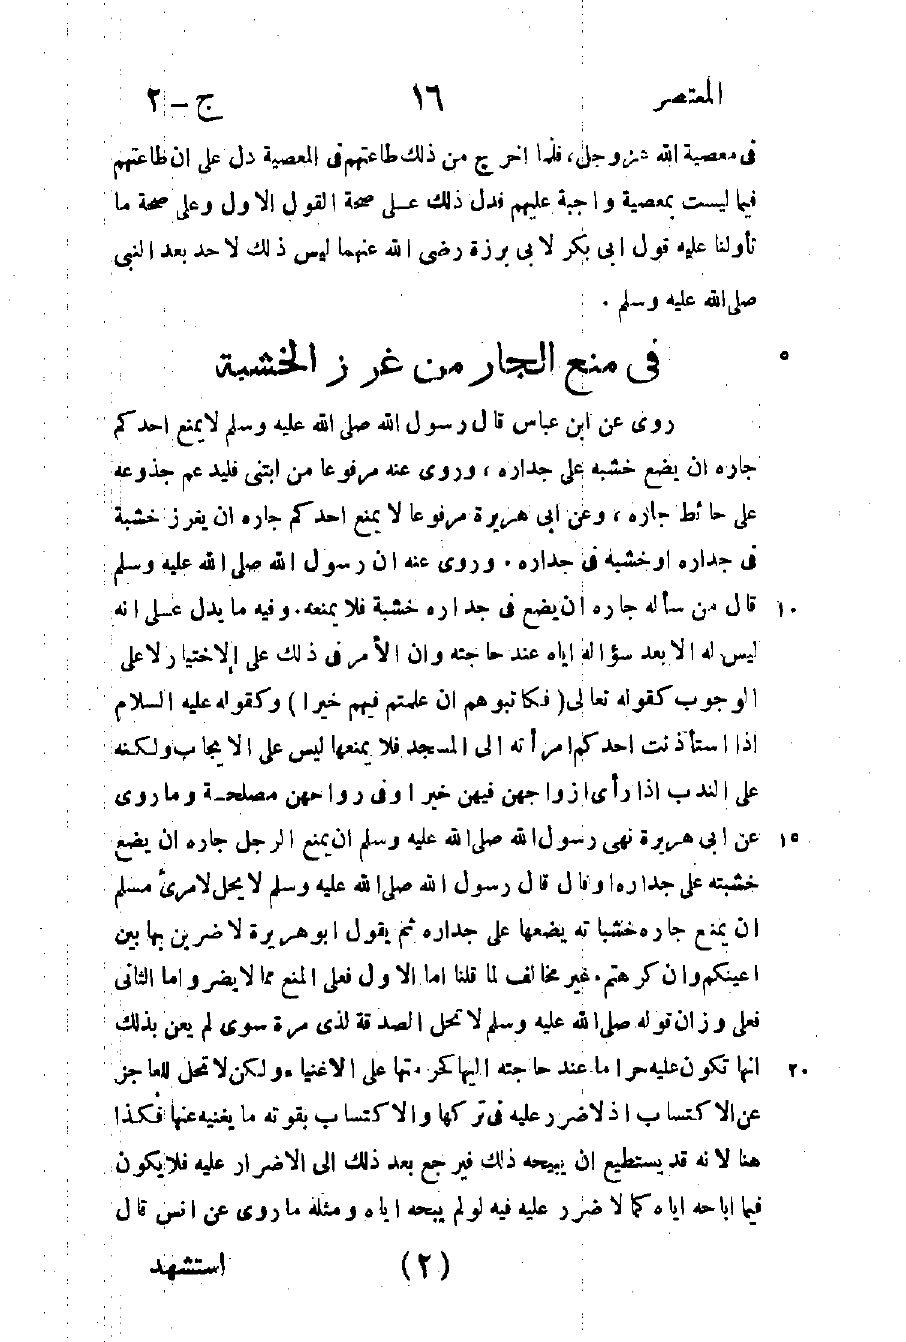 المعتصر ١٦ ج – ٢
فى معصية الله عز و جل، فلما اخرج من ذلك طاعتهم فى المعصية دل على ان طاعتهم
فيما ليست بمعصية و اجبة عليهم فدل ذلك على صحة القول الاول وعلى صحة ما
تأولنا عليه قول ابى بكر لابى برزة رضى الله عنهما ليس ذلك لاحد بعد النبى
صلى الله عليه وسلم .
٥ فى منع الجار من غرز الخشبة
روى عن ابن عباس قال رسول الله صلى الله عليه وسلم لا يمنع احدكم
جاره ان يضع خشبه على جداره، وروى عنه مرفوعا من ابتنى فليدعم جذوعه
على حائط جاره، وعن ابى هريرة مرفوعا لا يمنع احدكم جاره ان يغرز خشبة
فى جداره او خشبه فى جداره. وروى عنه ان رسول الله صلى الله عليه وسلم
١٠ قال من سأله جاره ان يضع فى جداره خشبة فلا يمنعه. وفيه ما يدل على انه
ليس له الا بعد سؤاله اياه عند حاجته وان الأمر فى ذلك على الاختيار لا على
الوجوب كقوله تعالى (فكاتبوهم ان علمتم فيهم خيرا) وكقوله عليه السلام
اذا استأذنت احدكم امرأته الى المسجد فلا يمنعها ليس على الايجاب ولكنه
على الندب اذا رأى ازواجهن فيهن خيرا وفى رواحهن مصلحة وما روى
١٥ عن ابى هريرة نهى رسول الله صلى الله عليه وسلم ان يمنع الرجل جاره ان يضع
خشبته على جداره او قال قال رسول الله صلى الله عليه وسلم لا يحل لامرئ مسلم
ان يمنع جاره خشباته يضعها على جداره ثم يقول ابو هريرة لاضربن بها بين
اعينكم وان كرهتم. غير مخالف لما قلنا اما الاول فعلى المنع مما لا يضر و اما الثانى
فعلى وزان قوله صلى الله عليه وسلم لا تحل الصدقة لذى مرة سوى لم يعن بذلك
٢٠ انها تكون عليه حراما عند حاجته اليها كحرمتها على الاغنياء ولكن لا تحل للعاجز
عن الاكتساب اذ لا ضرر عليه فى تركها والاكتساب بقوته ما يغنيه عنها فكذا
هنا لانه قد يستطيع ان يبيحه ذلك فيرجع بعد ذلك الى الاضرار عليه فلا يكون
فيما اباحه اياه كما لا ضرر عليه فيه لو لم يبحه اياه ومثله ما روى عن انس قال
(٢) استشهد